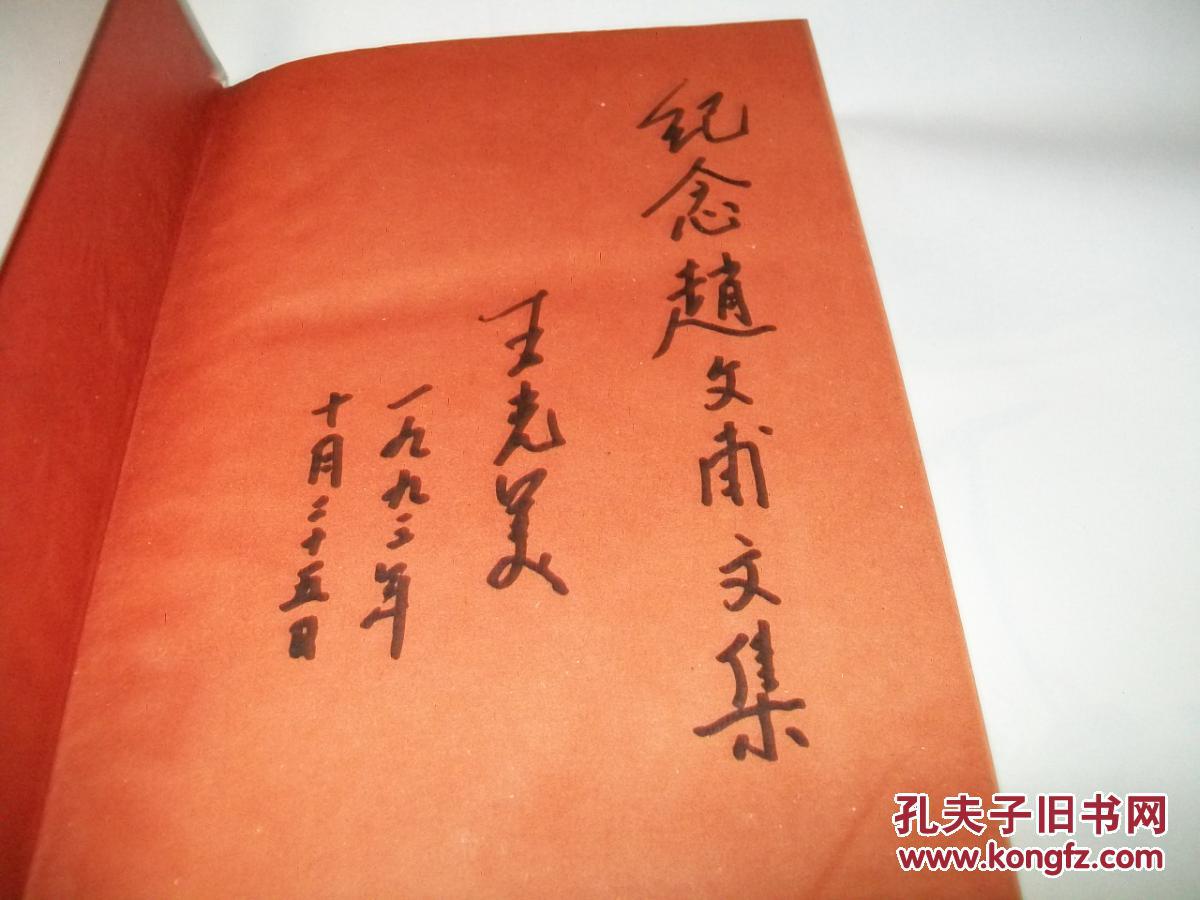 纪念趙文甫文集
王光美
一九九二年
十月二十五日
孔夫子旧书网
www.kongfz.com